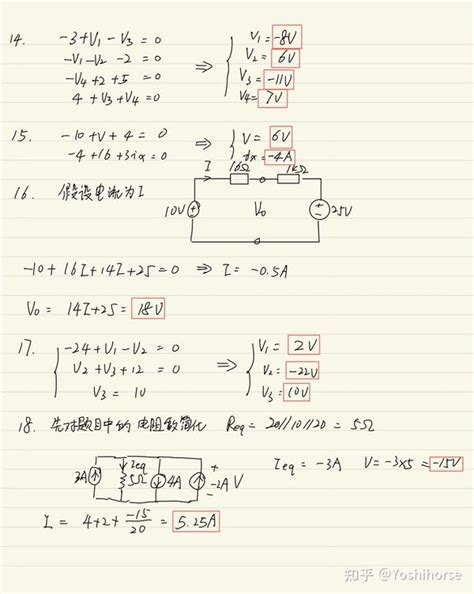 14. -3+V₁-V₃=0 V₁=-8V
-V₁-V₂-2=0 ⇒ V₂=6V
-V₄+2+I=0 V₃=-11V
4+V₃+V₄=0 V₄=7V
15. -10+V+4=0 ⇒ V=6V
-4+16+3ix=0 ix=-4A
16. 假设电流为I I 16Ω 1kΩ
10V + - V₀ + - 25V
-10+16I+14I+25=0 ⇒ I=-0.5A
V₀= 14I+25= 18V
17. -24+V₁-V₂=0 V₁=2V
V₂+V₃+12=0 ⇒ V₂=-22V
V₃=10 V₃=10V
18. 先对题目中的电阻做简化 Req=20//10//20=5Ω
3A Ieq 5Ω 4A -2A + V - Ieq=-3A V=-3×5=-15V
I = 4+2+ -15/20 = 5.25A
知乎 @Yoshihorse